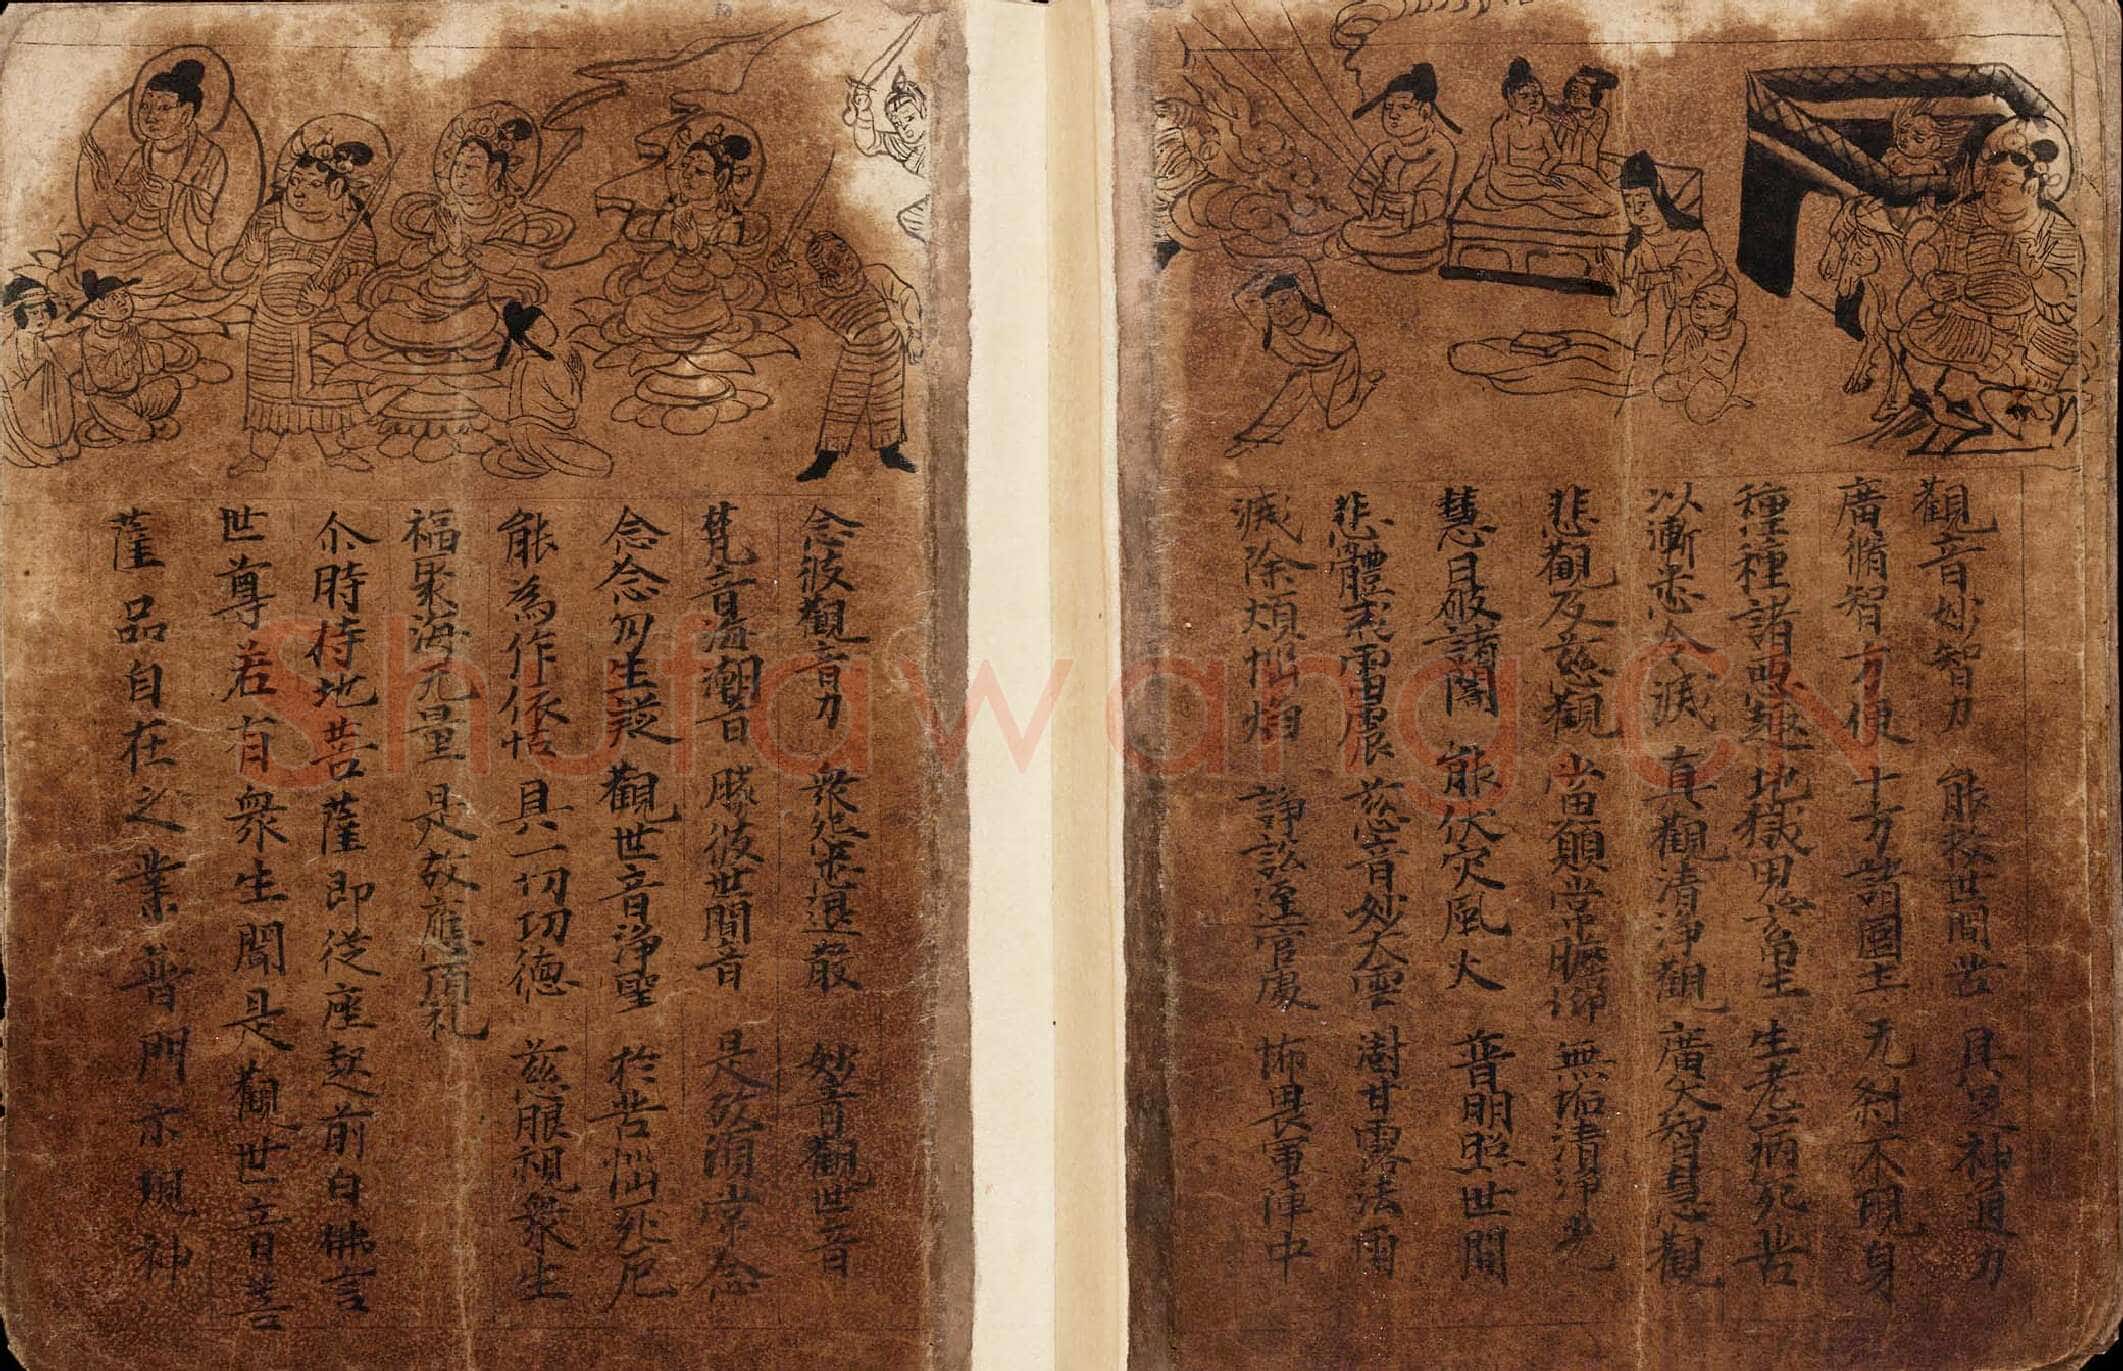 觀音妙智力 能救世間苦 具足神通力
廣脩智方便 十方諸國土 无刹不現身
種種諸惡趣 地獄鬼畜生 生老病死苦
以漸悉令滅 真觀清淨觀 廣大智慧觀
悲觀及慈觀 當願常瞻仰 無垢清淨光
慧日破諸闇 能伏灾風火 普明照世間
悲體戒雷震 慈音妙大雲 澍甘露法雨
滅除煩惱焰 諍訟逕官處 怖畏軍陣中
念彼觀音力 衆怨悉退散 妙音觀世音
梵音海潮音 勝彼世間音 是故須常念
念念勿生疑 觀世音淨聖 於苦惱死厄
能為作依怙 具一切功德 慈眼視衆生
福聚海无量 是故應頂礼
尒時持地菩薩即從座起前白佛言
世尊若有衆生聞是觀世音菩
薩品自在之業普門示現神
Shufawang.CN